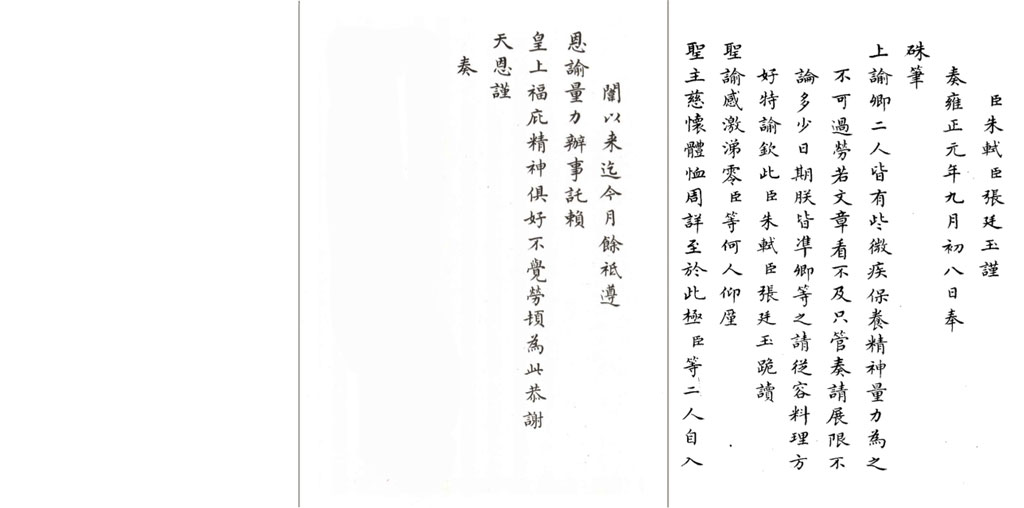 臣朱軾臣張廷玉謹
奏雍正元年九月初八日奉
硃筆
上諭卿二人皆有些微疾保養精神量力為之
不可過勞若文章看不及只管奏請展限不
論多少日期朕皆準卿等之請從容料理方
好特諭欽此臣朱軾臣張廷玉跪讀
聖諭感激涕零臣等何人仰廑
聖主慈懷體恤周詳至於此極臣等二人自入
闈以来迄今月餘祗遵
恩諭量力辦事託賴
皇上福庇精神俱好不覺勞頓為此恭謝
天恩謹
奏